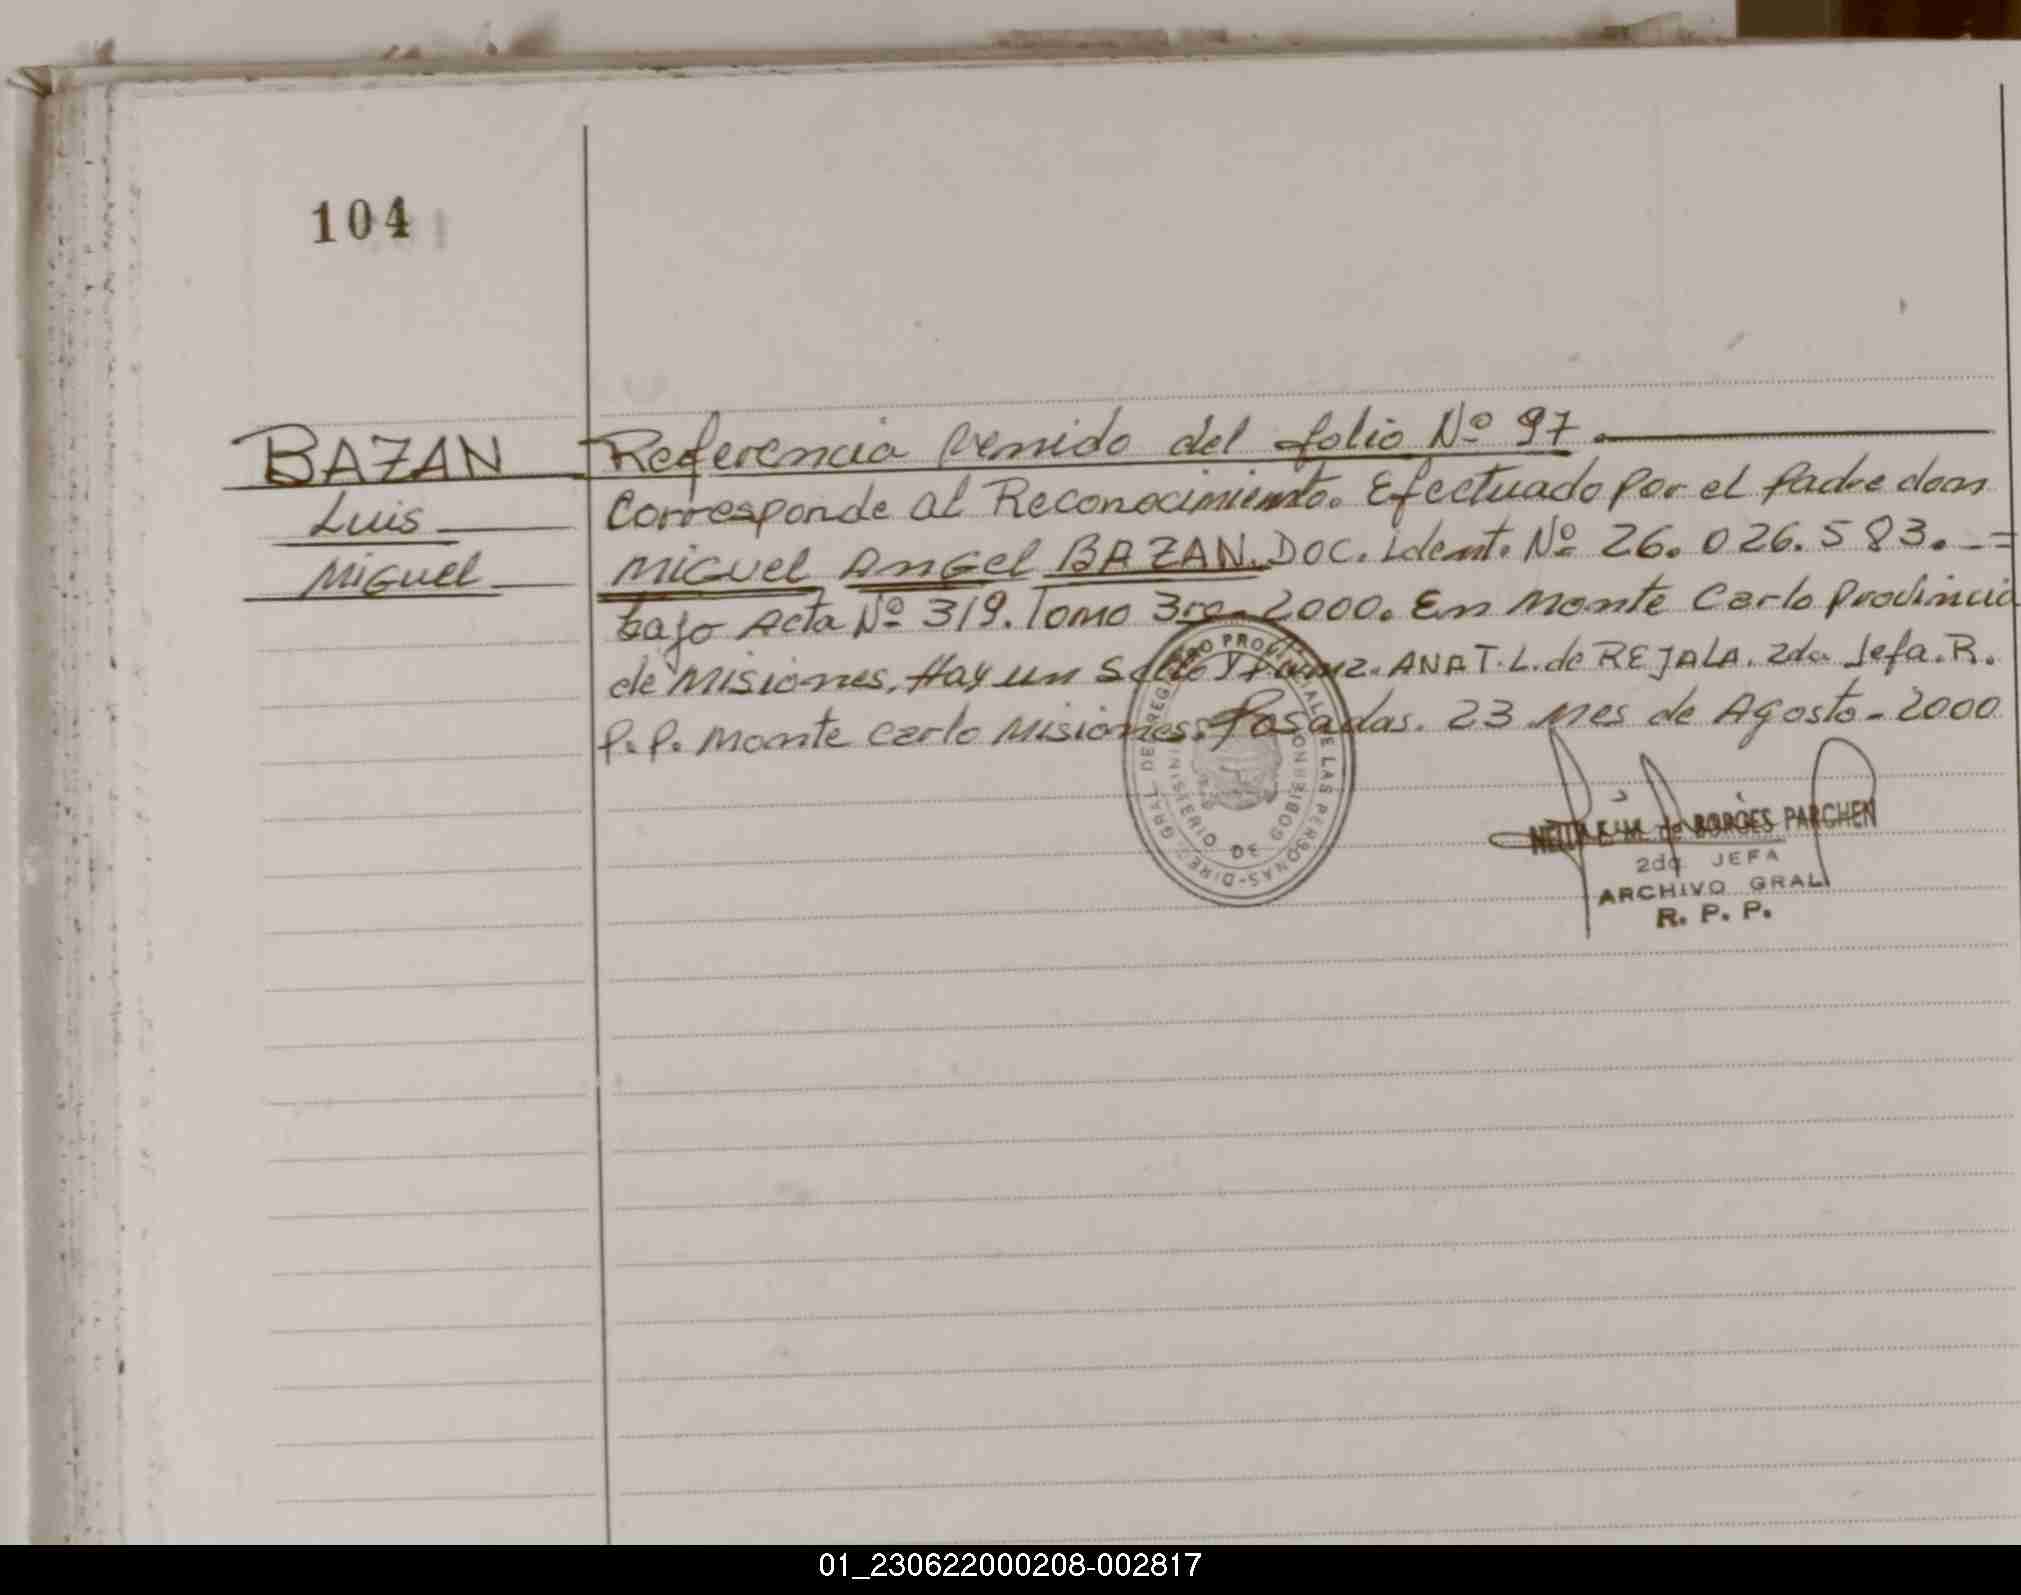 104
BAZAN
Luis
Miguel
Referencia venido del folio Nº 97.
Corresponde al Reconocimiento. Efectuado por el padre don
Miguel Angel BAZAN. Doc. Ident. Nº 26.026.583.-=
bajo Acta Nº 319. Tomo 3ro- 2000. En Monte Carlo Provincia
de Misiones. Hay un Sello y Firma. ANA T. L. de REJALA. 2da Jefa. R.
P. P. Monte Carlo Misiones: Posadas. 23 Mes de Agosto - 2000
DIREC. GRAL. DE REGISTRO PROVINCIAL DE LAS PERSONAS
MINISTERIO DE GOBIERNO
BORGES PARCHEN
2da JEFA
ARCHIVO GRAL
R. P. P.
01_230622000208-002817